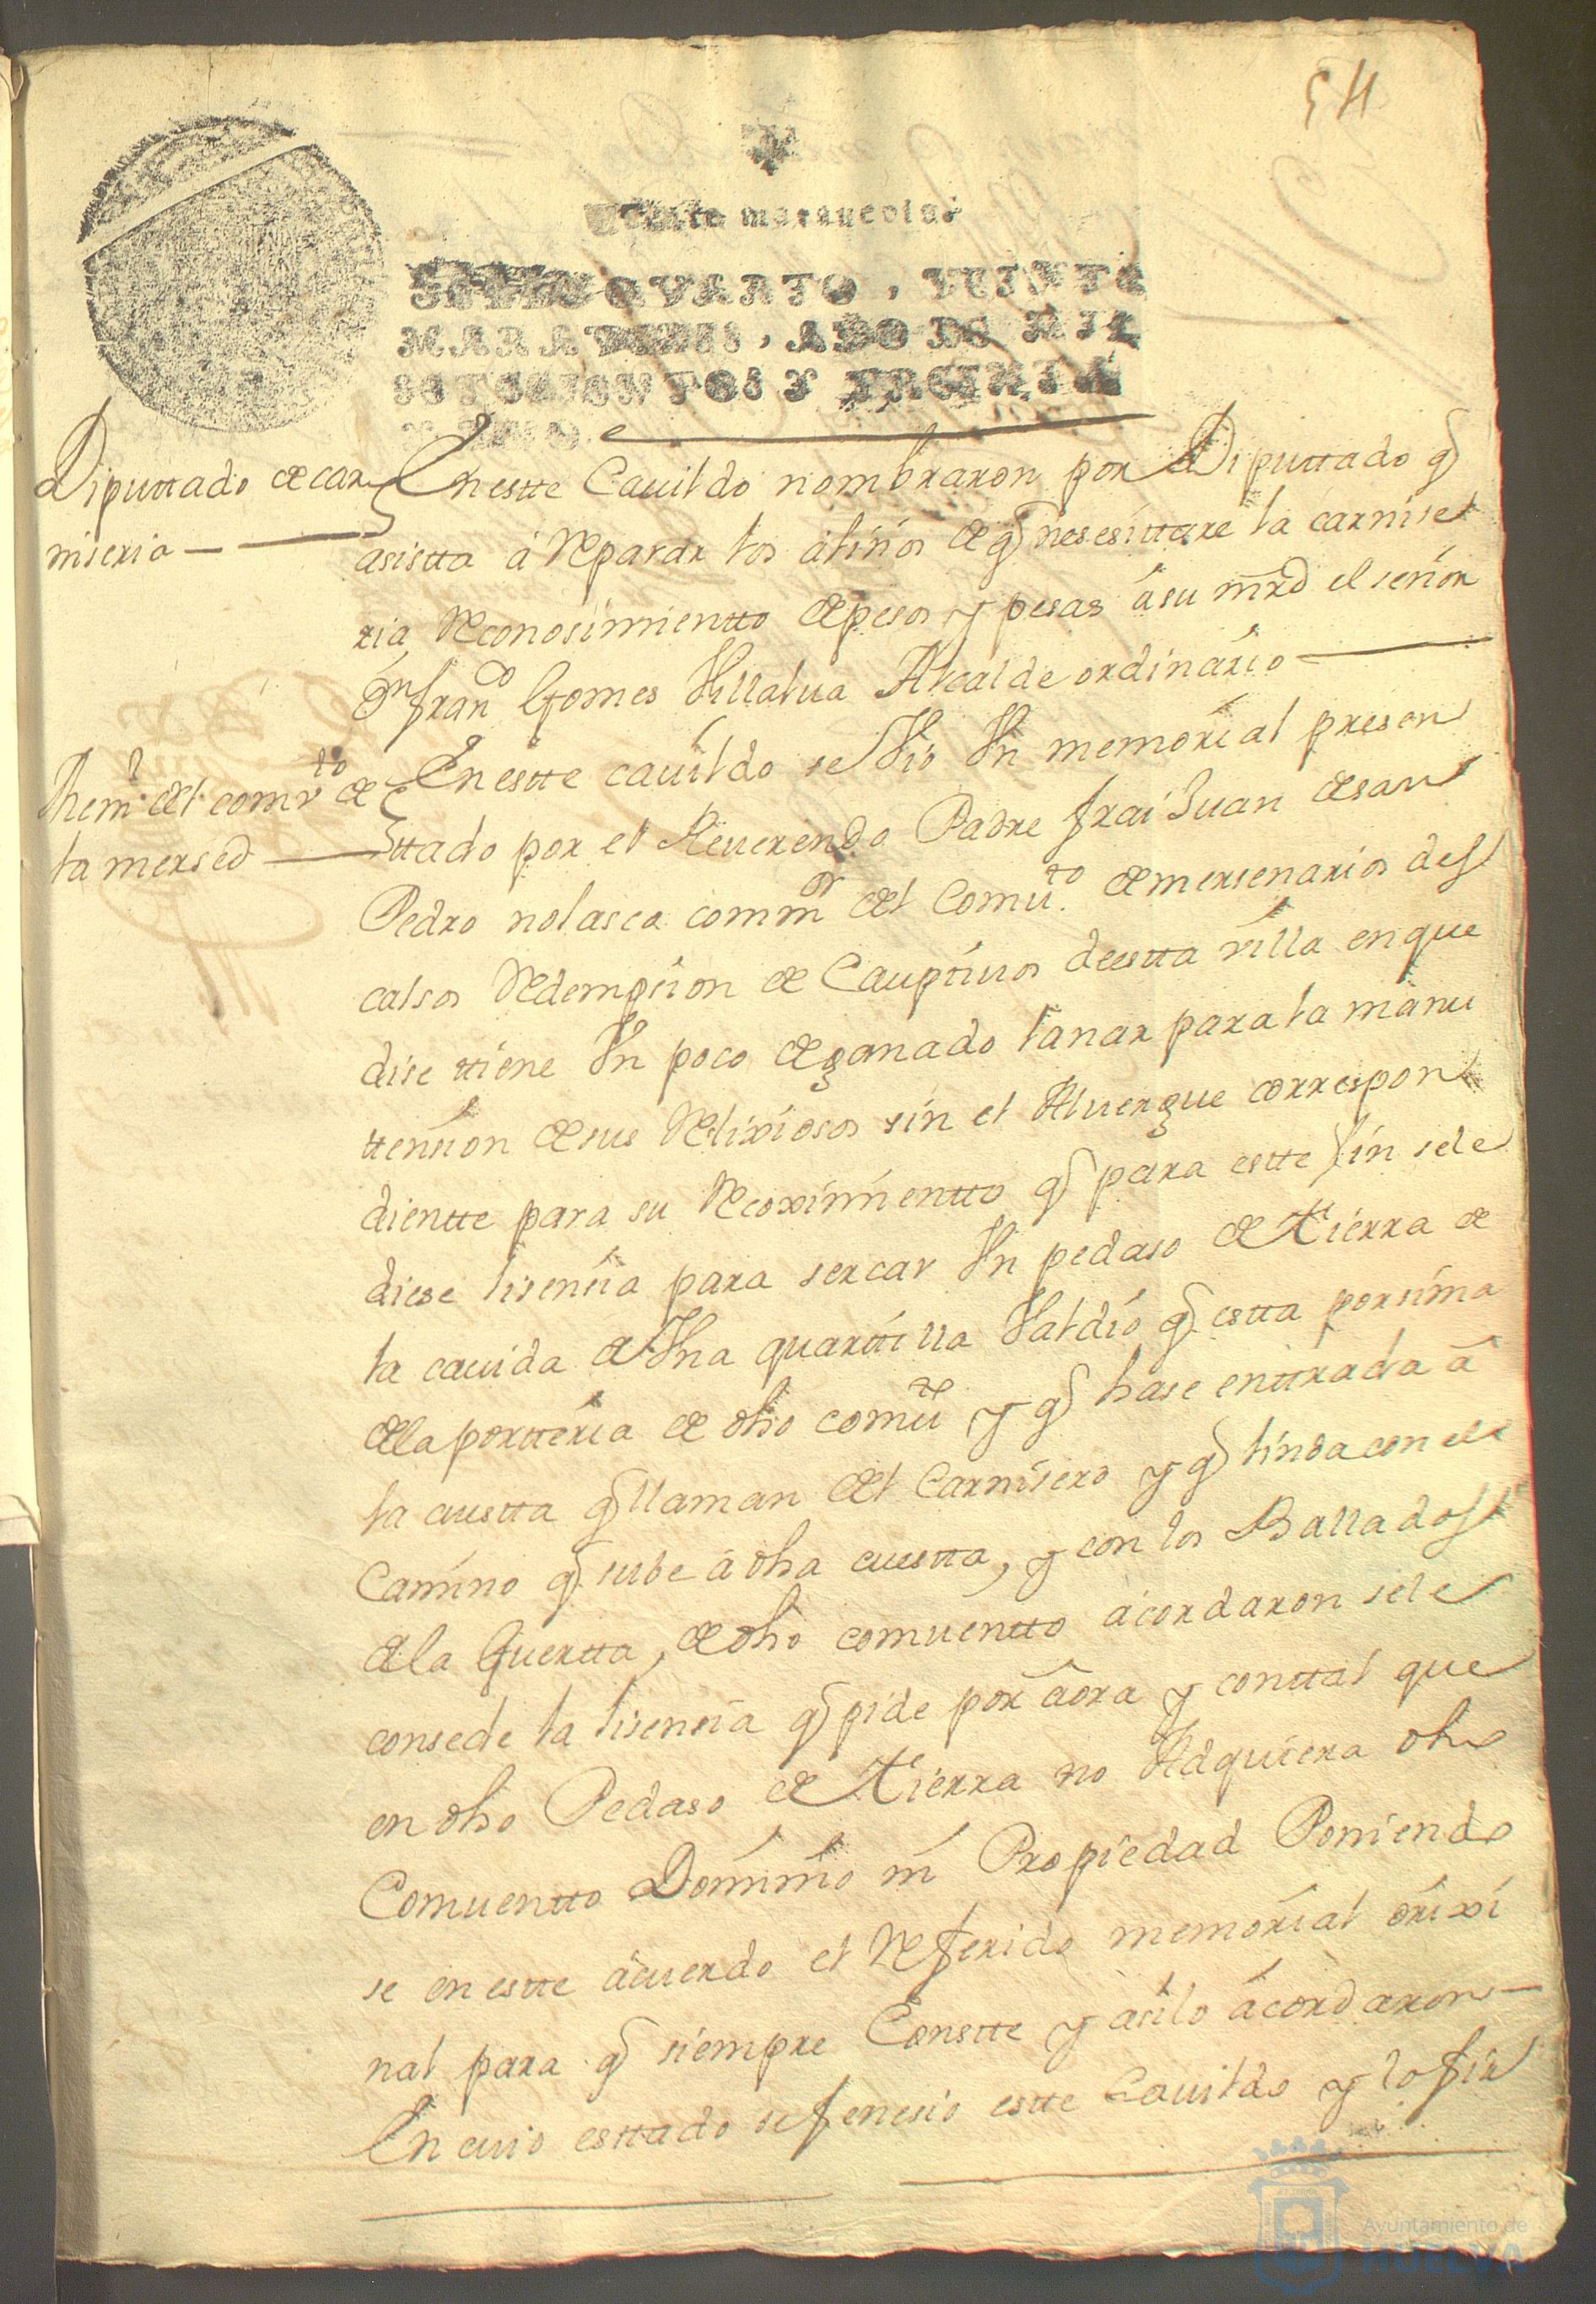 54
maravedis
SELLO QVARTO, VEINTE
MARAVEDIS, AÑO DE MIL
SETECIENTOS Y TREINTA
Diputtado de car
niseria
En estte Cauildo nombraron por Diputtado q̃
asistta á Reparar los aliños de q̃ nesesittare la carnise
ria, Reconosimientto de pesos y pesas á su mrd el señor
Dn franco Gomes Villalua Alcalde ordinario
Mem.l del comvto de
la mersed
En estte cauildo se Vio Vn memorial presen
ttado por el Reuerendo Padre frai Juan de san
Pedro nolasco comm.or del Comuto. de mersenarios des
calsos Redempsion de Cauptiuos de estta villa en que
dise ttiene Vn poco de ganado lanar para la manu
tension de sus Relixiosos sin el Aluergue correspon
dientte para su Recoximientto q̃ para estte fin se le
diese lisensia para sercar Vn pedaso de ttierra de
la cauida de Vna quarttilla Valdio q̃ estta por sima
de la portteria de dho comuto y q̃ hase enttrada á
la cuestta q̃ llaman del Carnisero y q̃ linda con el
Camino q̃ sube á dha cuestta, y con los Ballados
de la Guertta, de dho comuentto acordaron se le
consede la lisensia q̃ pide por aora y con ttal que
en dho Pedaso de ttierra no Adquiera dho
Comuentto Dominio ni Propiedad Poniendo
se en estte acuerdo el Referido memorial orixi
nal para q̃ siempre Constte y asi lo acordaron
En cuio esttado se fenesio estte Cauildo y lo fir
Ayuntamiento de
HUELVA